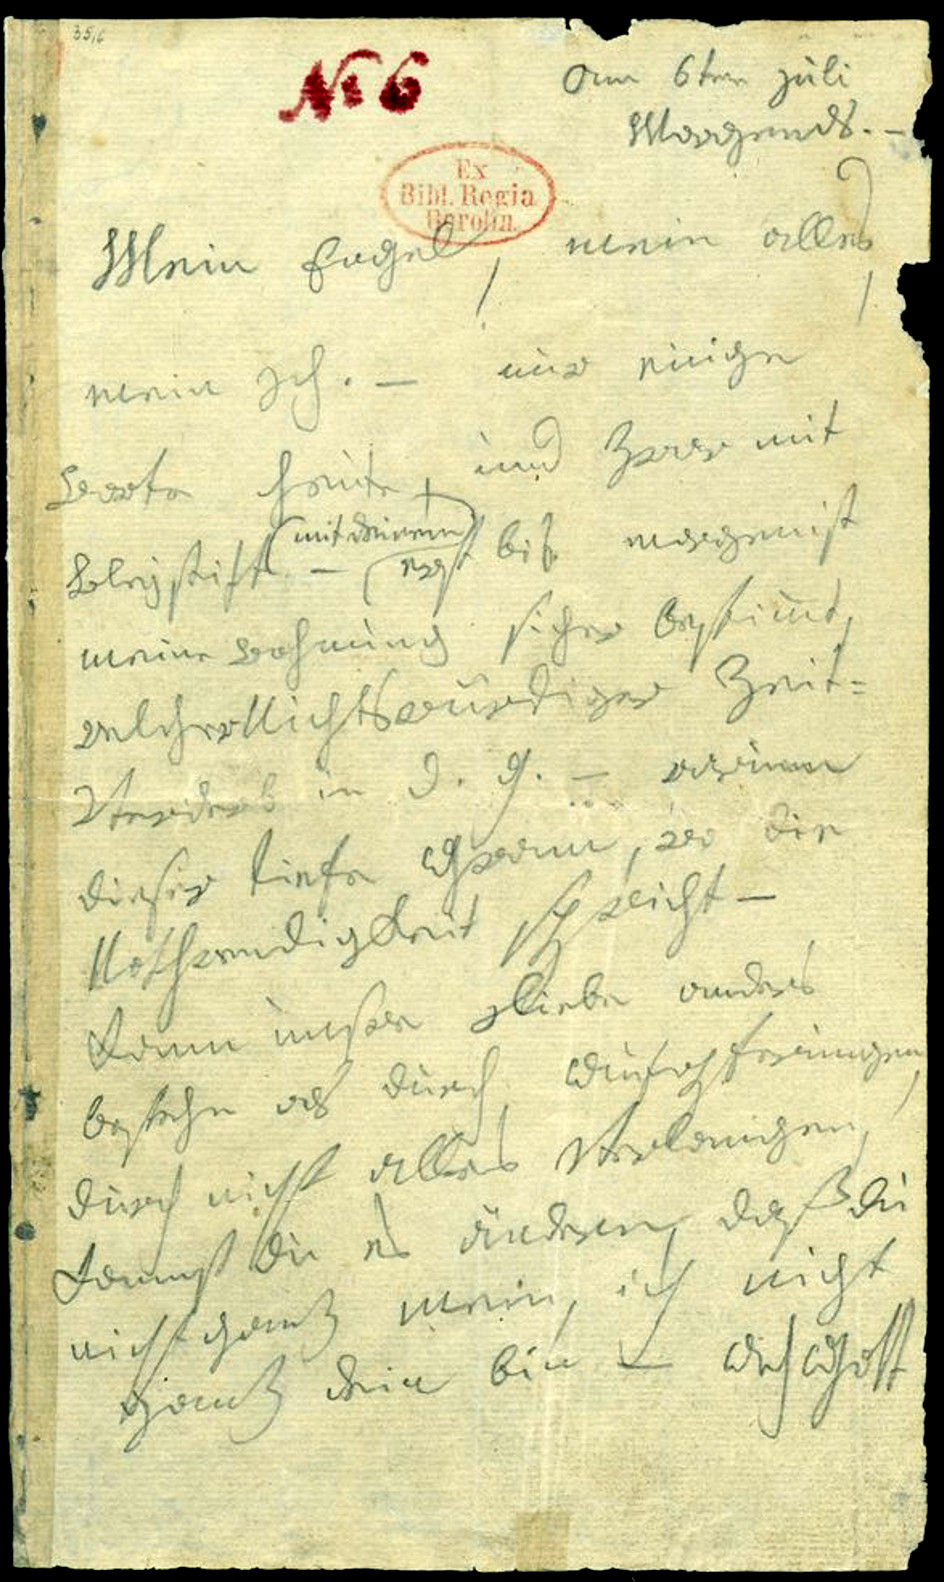 35,6
No 6
am 6ten Juli
Morgends. –
Mein Engel, mein alles,
mein Ich. – nur einige
Worte heute, und zwar mit
Bleystift – (mit deinem)
erst bis morgen ist
meine wohnung sicher bestimt,
welcher Nichtswürdiger Zeit=
Verderb in d. g. – warum
dieser tiefe Gram, wo die
Nothwendigkeit spricht –
Kann unsre Liebe anders
bestehn als durch Aufopferungen,
durch nicht alles Verlangen,
kannst du es ändern, daß du
nicht ganz mein, ich nicht
ganz dein bin – Ach Gott
Ex
Bibl. Regia
Berolin.